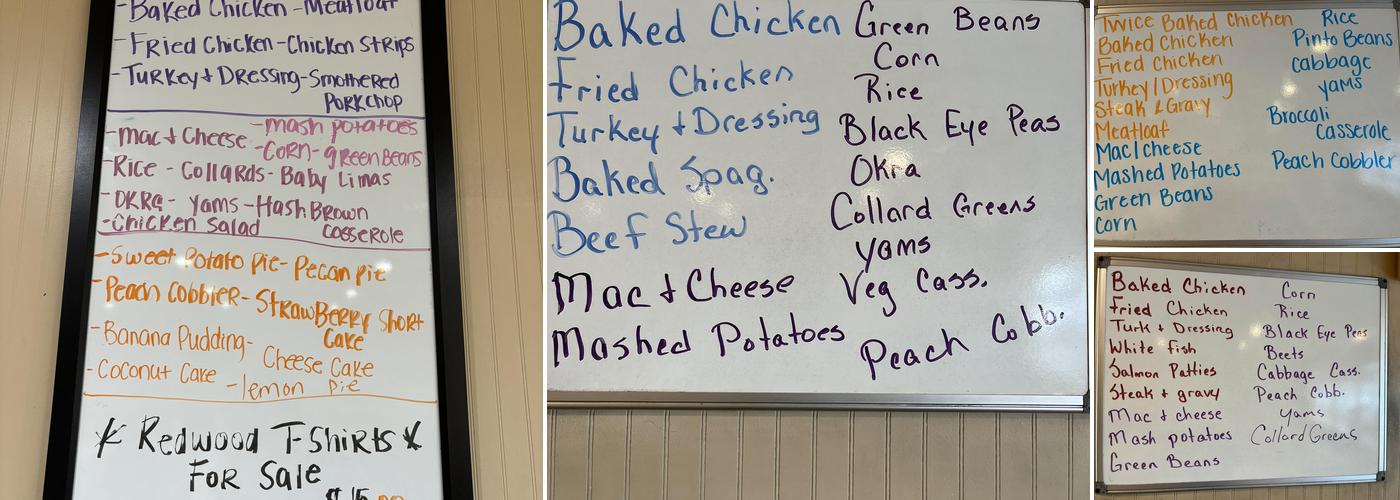 -Baked Chicken -Meatloaf
-Fried Chicken-Chicken Strips
-Turkey + Dressing-Smothered
Porkchop
-Mac + Cheese -Mash potatoes
-Corn-greenBeans
-Rice - Collards- Baby Limas
-OKRA- Yams -HashBrown
Casserole
-Chicken Salad
-Sweet Potato Pie- Pecan pie
-Peach Cobbler- StrawBerry Short
Cake
-Banana Pudding- Cheese Cake
-Coconut Cake -lemon pie
* Redwood T-Shirts *
For Sale
Baked Chicken Green Beans
Corn
Fried Chicken Rice
Turkey + Dressing Black Eye Peas
Baked Spag. Okra
Collard Greens
Beef Stew Yams
Mac + Cheese Veg Cass.
Mashed Potatoes Peach Cobb.
Twice Baked Chicken Rice
Baked Chicken Pinto Beans
Fried Chicken Cabbage
Turkey/Dressing Yams
Steak & Gravy Broccoli
Meatloaf Casserole
Mac/cheese
Mashed Potatoes Peach Cobbler
Green Beans
Corn
Baked Chicken Corn
Fried Chicken Rice
Turk + Dressing Black Eye Peas
White fish Beets
Salmon Patties Cabbage Cass.
Steak + gravy Peach Cobb.
Mac + cheese Yams
Mash potatoes Collard Greens
Green Beans